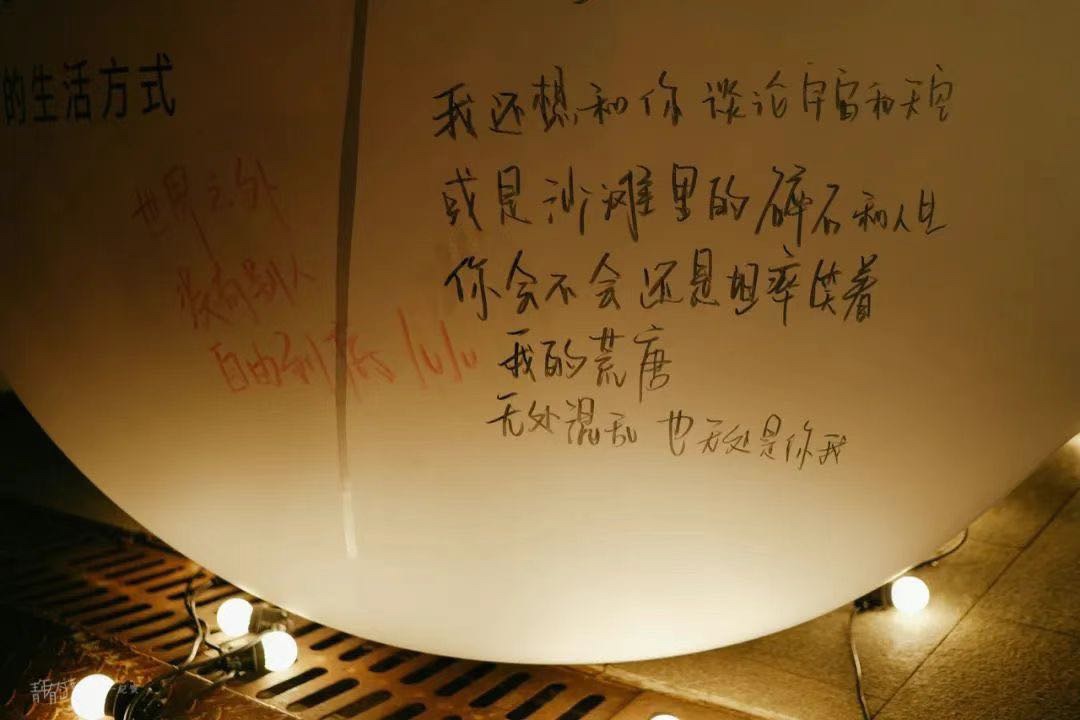 的生活方式
我还想和你谈论宇宙和天空
或是沙滩里的碎石和人生
你会不会还是坦率笑着
我的荒唐
无处混乱 也无处是你我
世界之外
没有别人
自由到 lulu